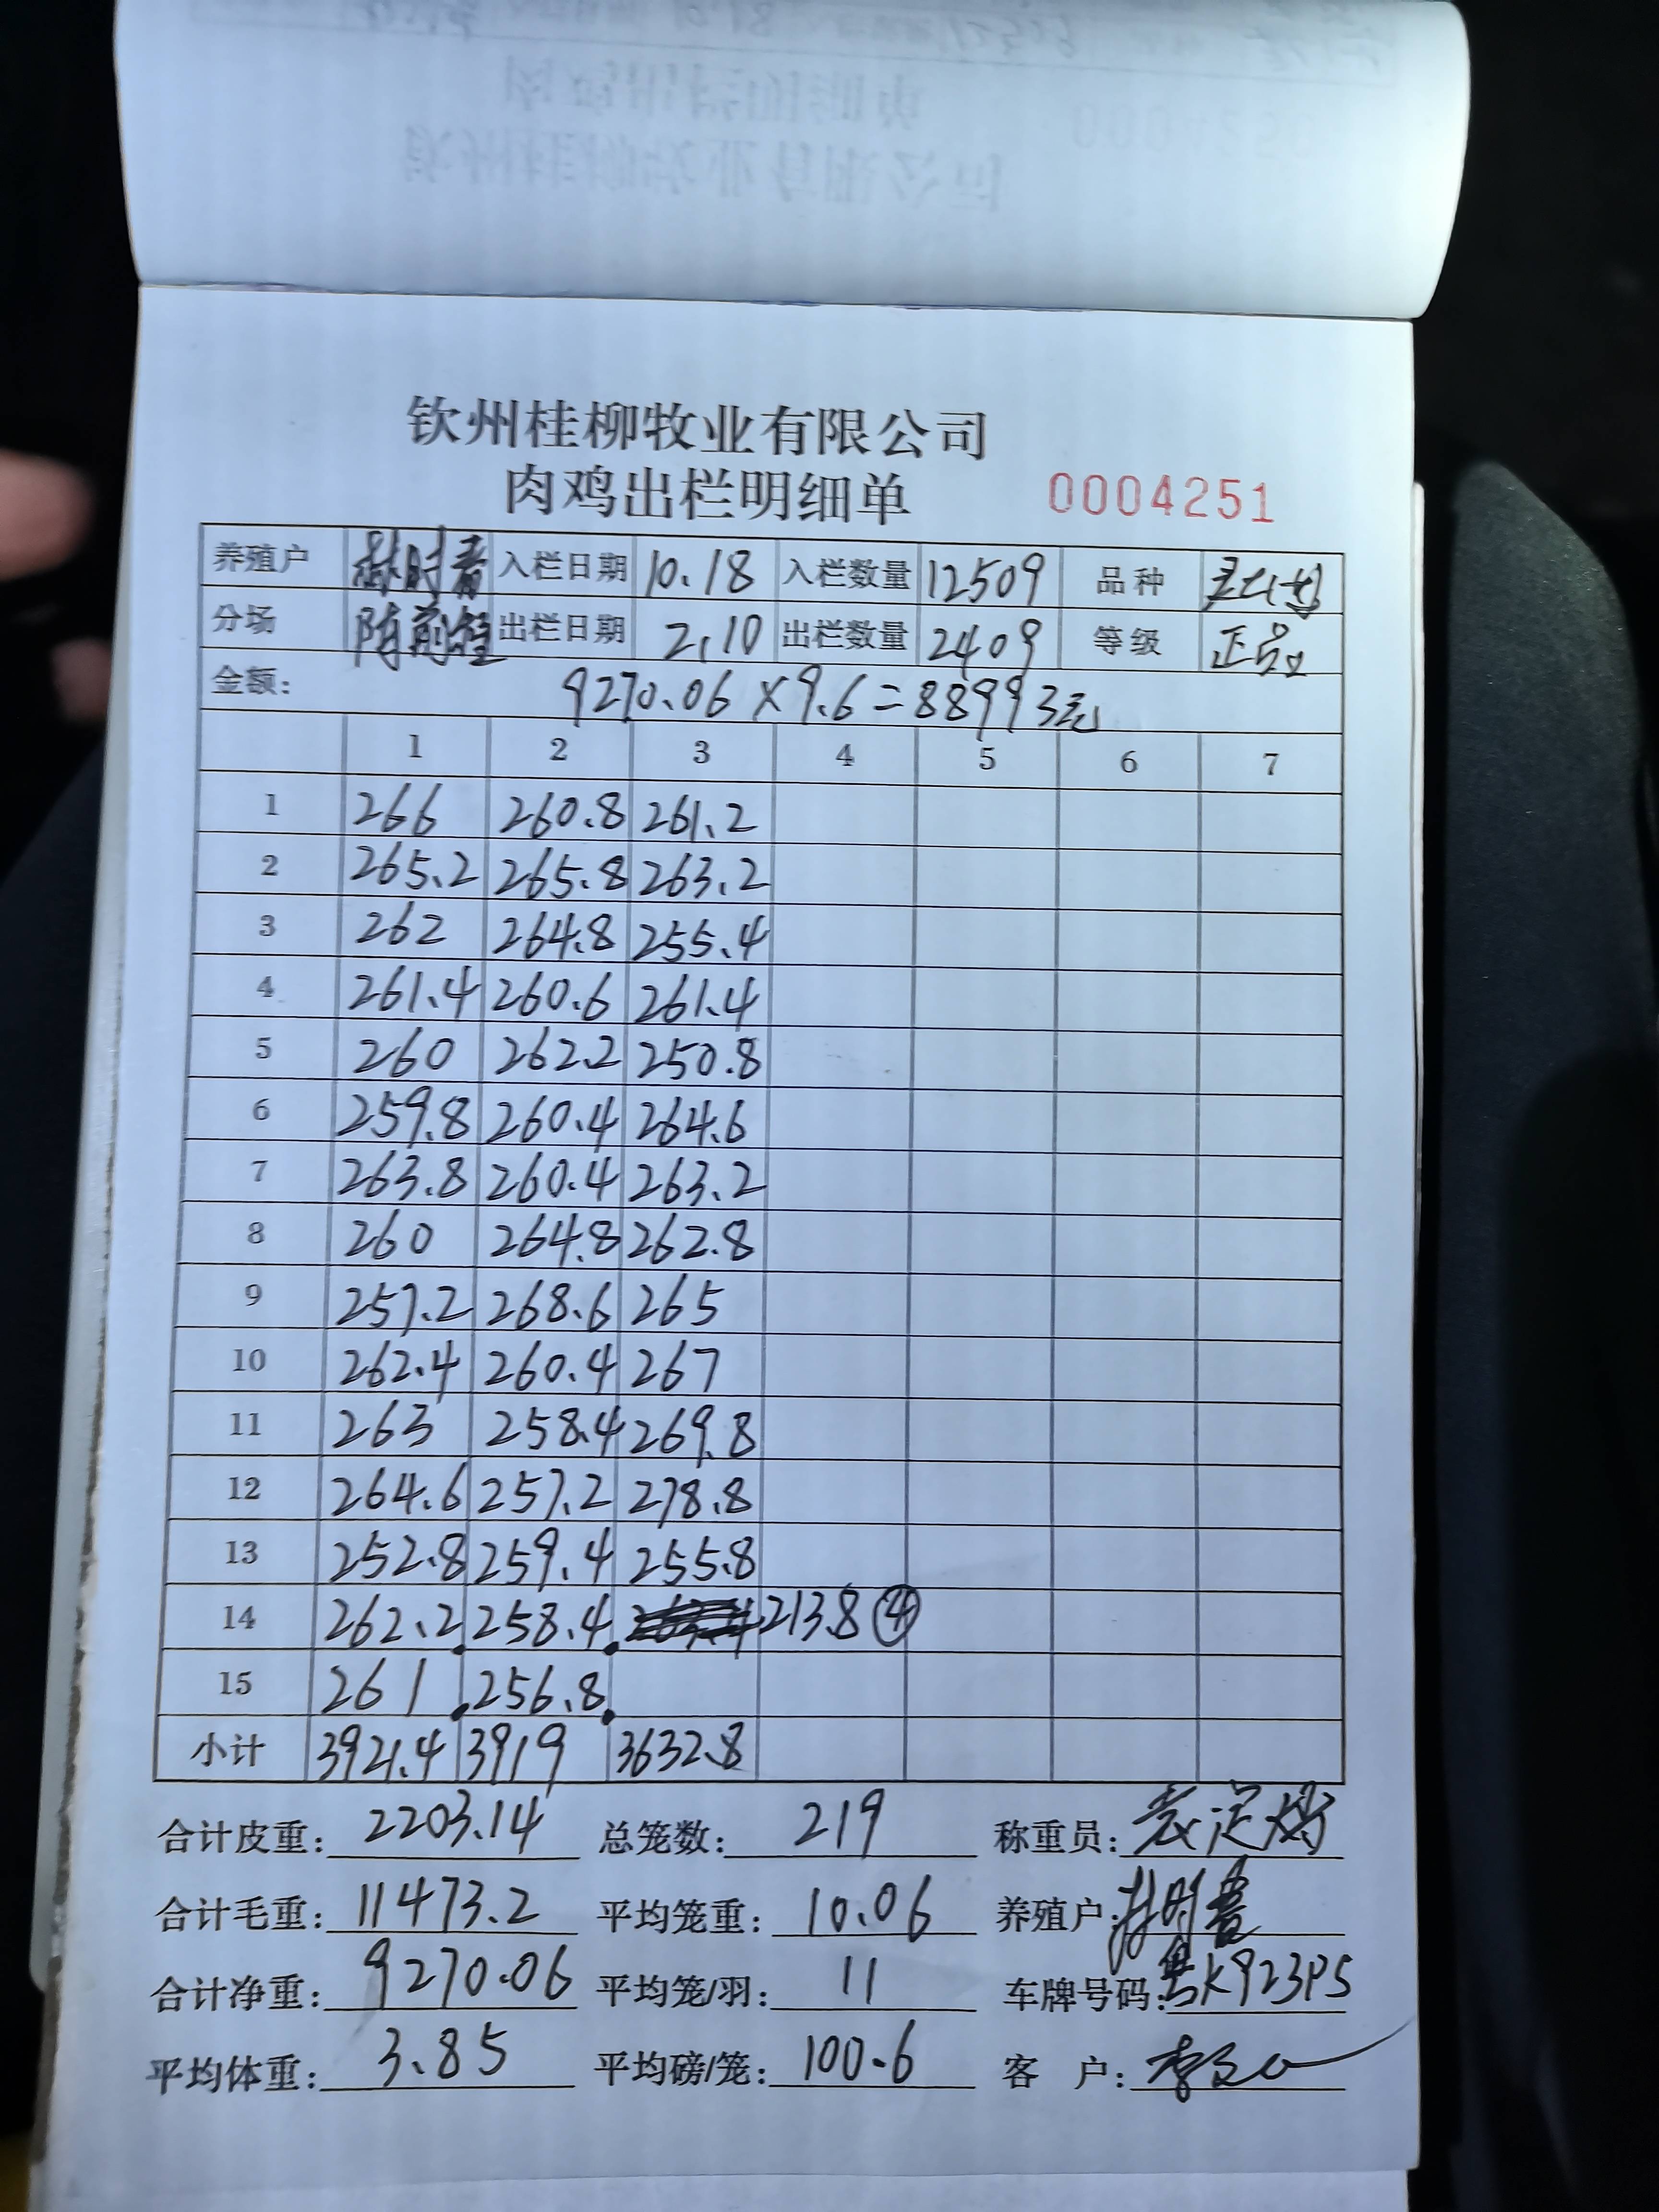 钦州桂柳牧业有限公司
肉鸡出栏明细单 0004251
养殖户 林时春 入栏日期 10.18 入栏数量 12509 品种
分场 陈前程 出栏日期 2.10 出栏数量 2409 等级 正品
金额: 9270.06×9.6=88993元
1 2 3 4 5 6 7
1 266 260.8 261.2
2 265.2 265.8 263.2
3 262 264.8 255.4
4 261.4 260.6 261.4
5 260 262.2 250.8
6 259.8 260.4 264.6
7 263.8 260.4 263.2
8 260 264.8 262.8
9 257.2 268.6 265
10 262.4 260.4 267
11 263 258.4 269.8
12 264.6 257.2 278.8
13 252.8 259.4 255.8
14 262.2 258.4 213.8 ④
15 261 256.8
小计 3921.4 3919 3632.8
合计皮重: 2203.14 总笼数: 219 称重员:
合计毛重: 11473.2 平均笼重: 10.06 养殖户: 林时春
合计净重: 9270.06 平均笼/羽: 11 车牌号码: 粤K923P5
平均体重: 3.85 平均磅/笼: 100.6 客 户: